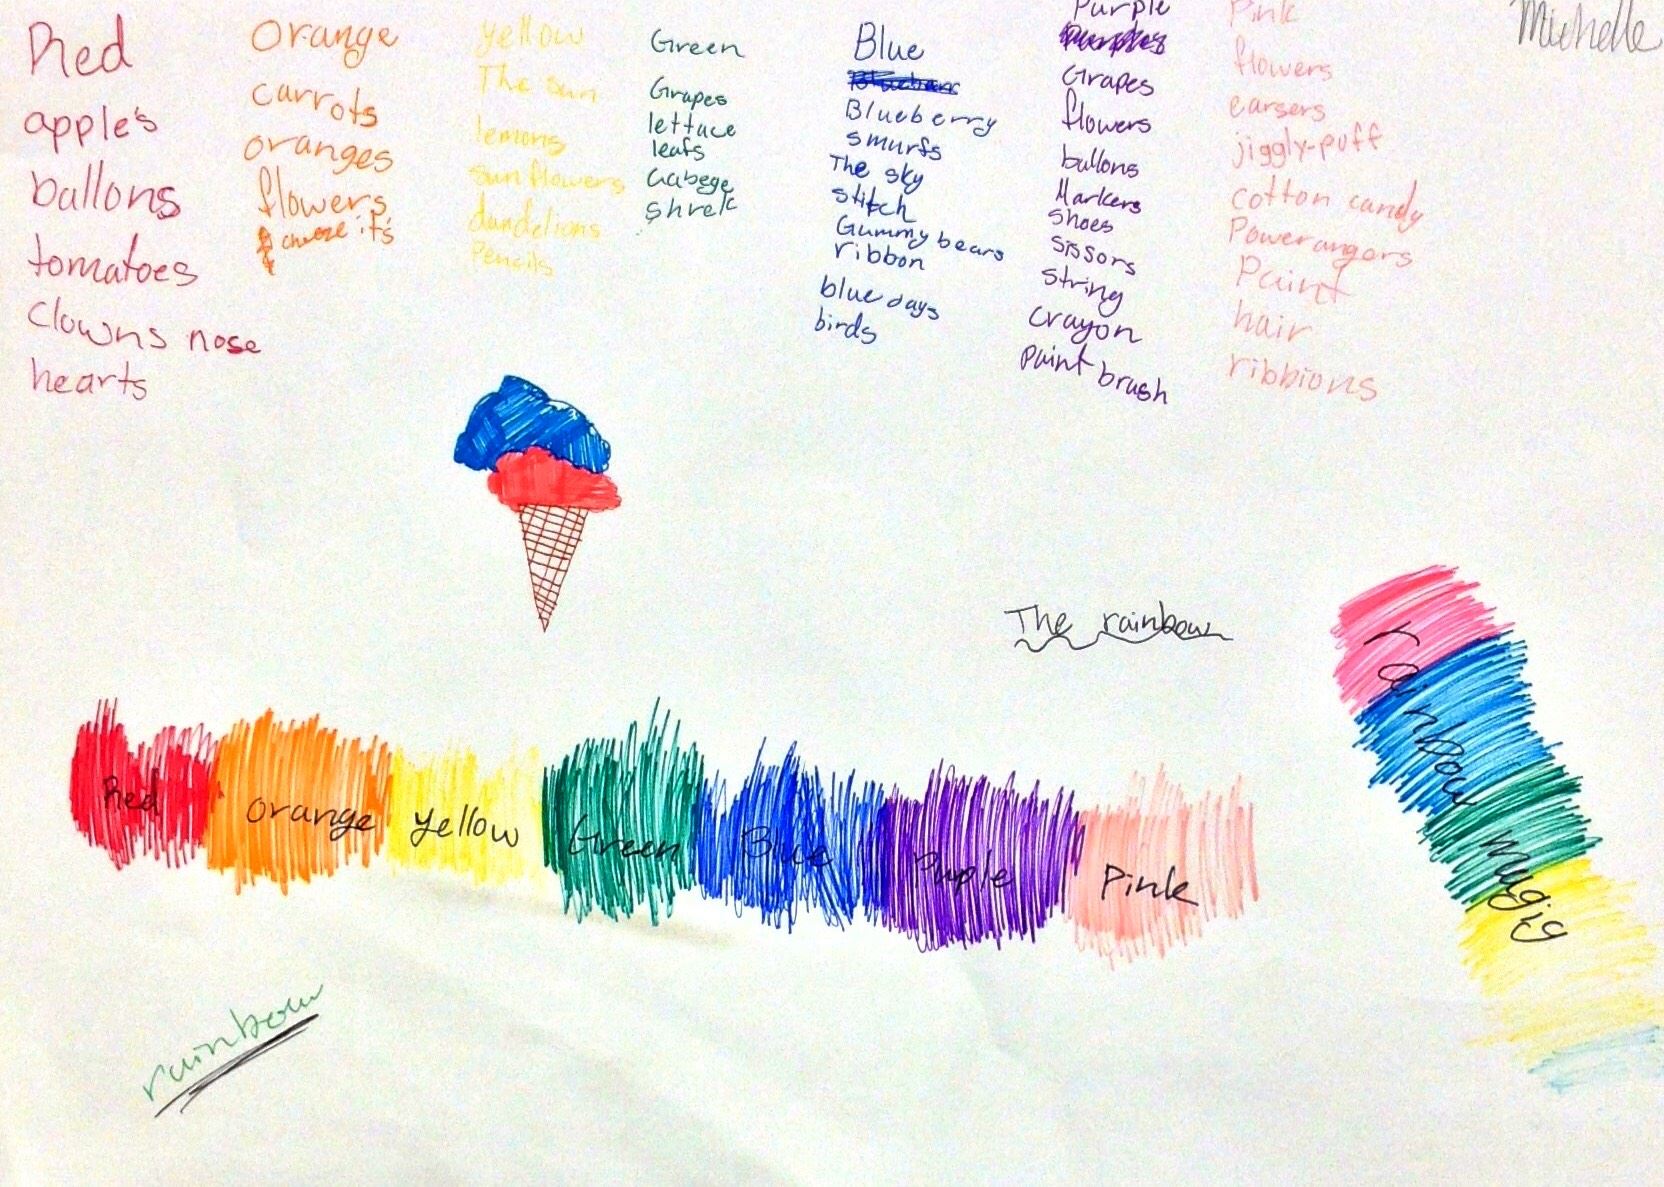 Red
apple's
ballons
tomatoes
Clowns nose
hearts
Orange
carrots
oranges
flowers
cheeze it's
yellow
The sun
lemons
sunflowers
dandelions
Pencils
Green
Grapes
lettuce
leafs
Gabege
Shrek
Blue
Blueberry
smurfs
The sky
stitch
Gummy bears
ribbon
blue days
birds
Purple
Grapes
flowers
ballons
Markers
shoes
sissors
string
crayon
paint brush
Pink
flowers
earsers
jiggly-puff
cotton candy
Powerangers
Paint
hair
ribbions
Michelle
The rainbow
Red
orange
yellow
Green
Blue
Puple
Pink
rainbow magic
rainbow